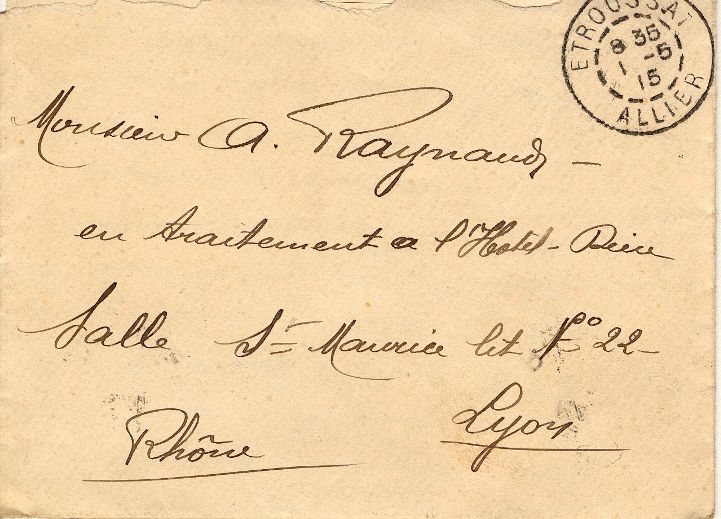 ETROUSSAT
8 35
1 -5
15
ALLIER
Monsieur A. Raynaud -
en traitement a l'Hotel-Dieu
Salle St Maurice lit No 22-
Lyon
Rhône